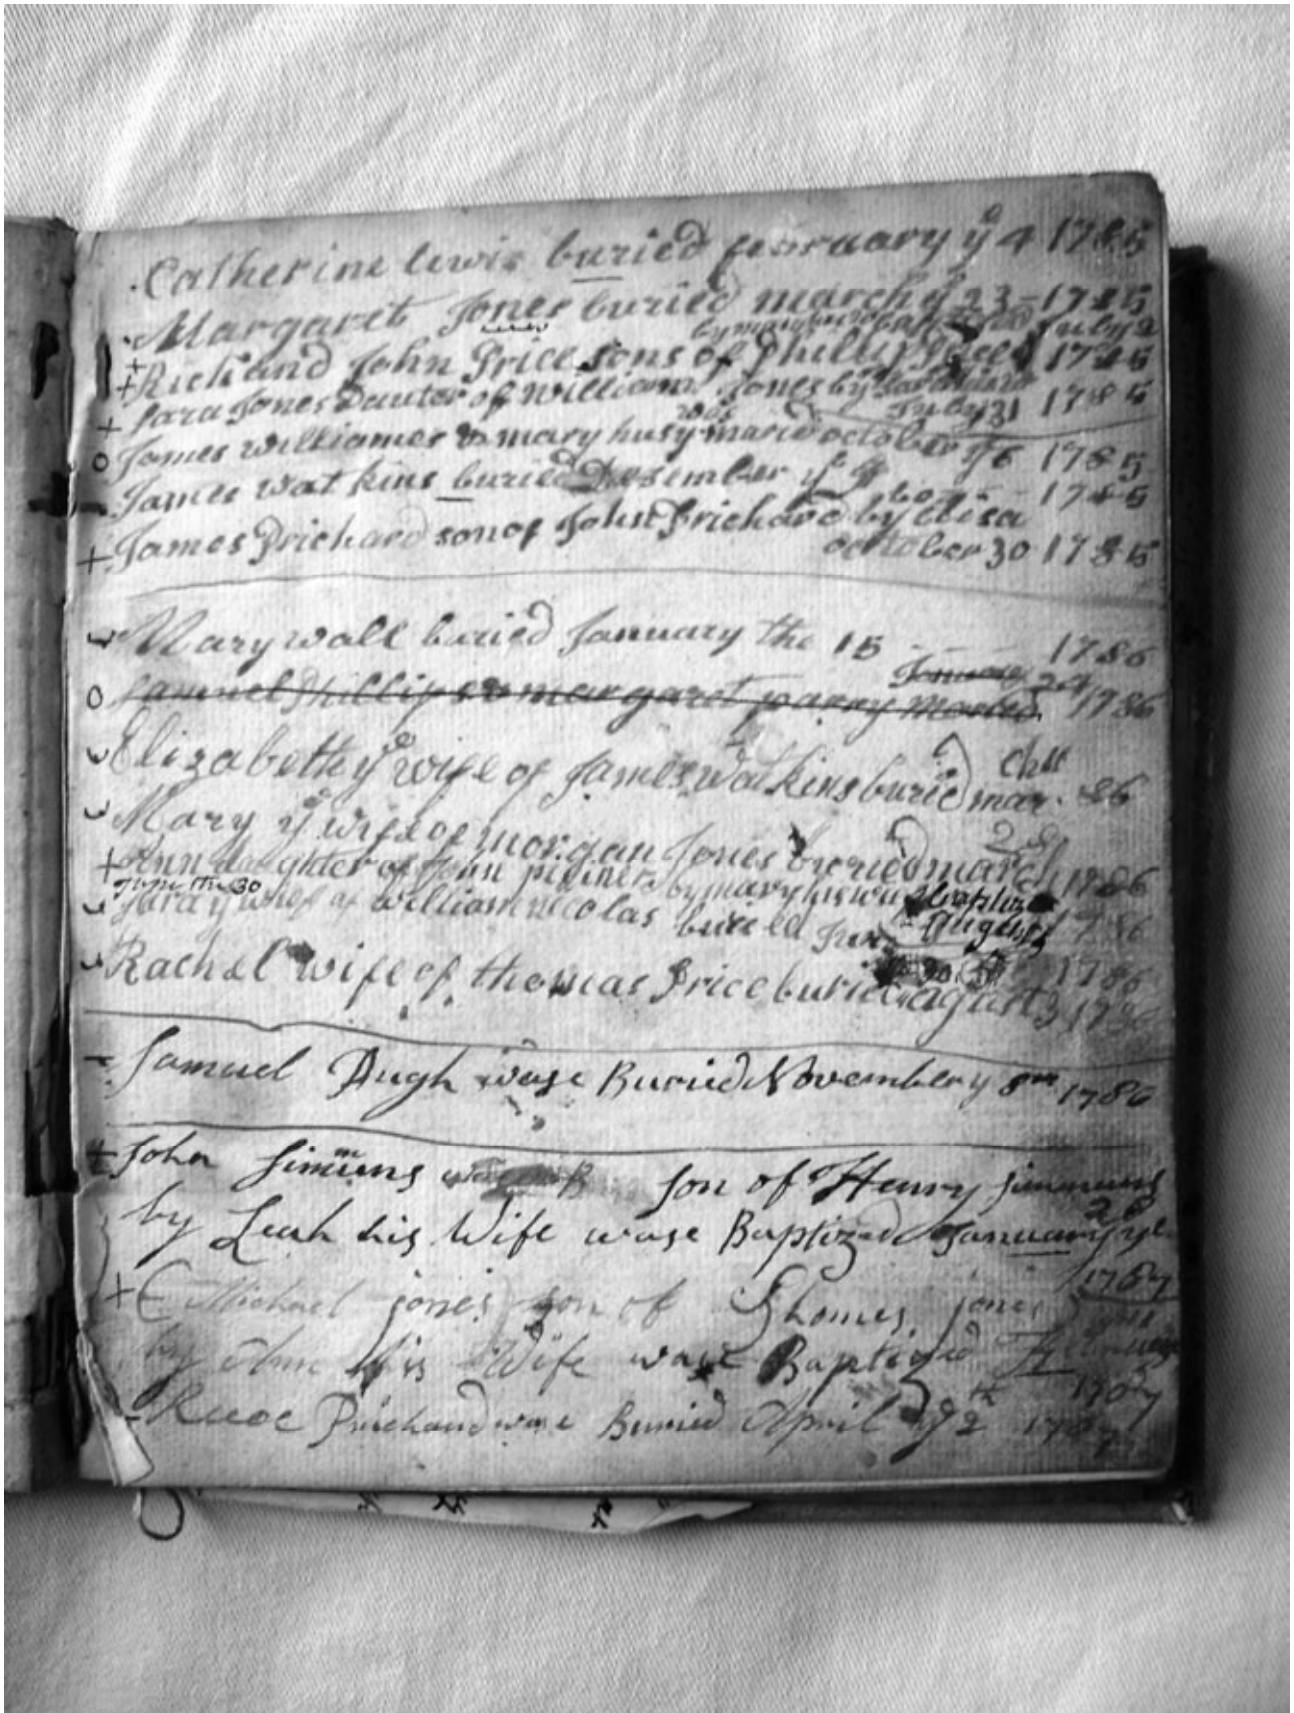 Catherine lewis buried february ye 4 1785
Margaret Jones buried march ye 23 - 1785
by mary his wife baptized July 2
Rich and John Price sons of Phillip Price 1785
Sara Jones Dauter of William Jones by
July 31 1785
was
James williames & mary husy maried october ye 6 1785
James watkins buried Desember ye 1785
James Prichard son of John Prichard by elisa
october 30 1785
Mary wall buried January the 15 1786
January 29
Samuel Phillips & margaret parry maried 1786
Elizabeth ye wife of James watkins buried mar. 86
Mary ye wife of morgan Jones buried march 1786
Ann daughter of John by mary his wife Baptized
June the 30
Sara ye wife of william nicolas buried June 1786
August
Rachel wife of thomas Price buried agust 3 1786
Samuel Pugh wase Buried November y 8th 1786
John Simmuns son of Henry Simmuns
by Leah his Wife wase Baptized January ye
26
1787
Michael jones son of Thomes jones
by Ann his Wife wase Baptized February
1787
Reece Prichard wase Buried April ye 2th 1787